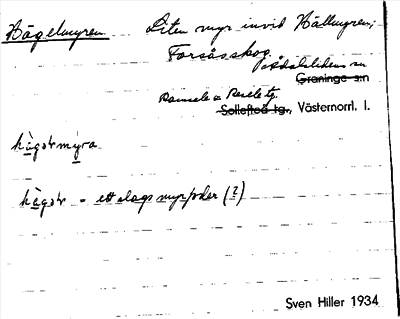 Hägelmyren. Liten myr invid Hällmyren,
Forsåsskog,
Ådalslidens sn
Graninge s:n
Ramsele o Resele tg.
Sollefteå tg., Västernorrl. l.
hägåτmỳra
hägåτ = ett slags myrfoder (?)
Sven Hiller 1934